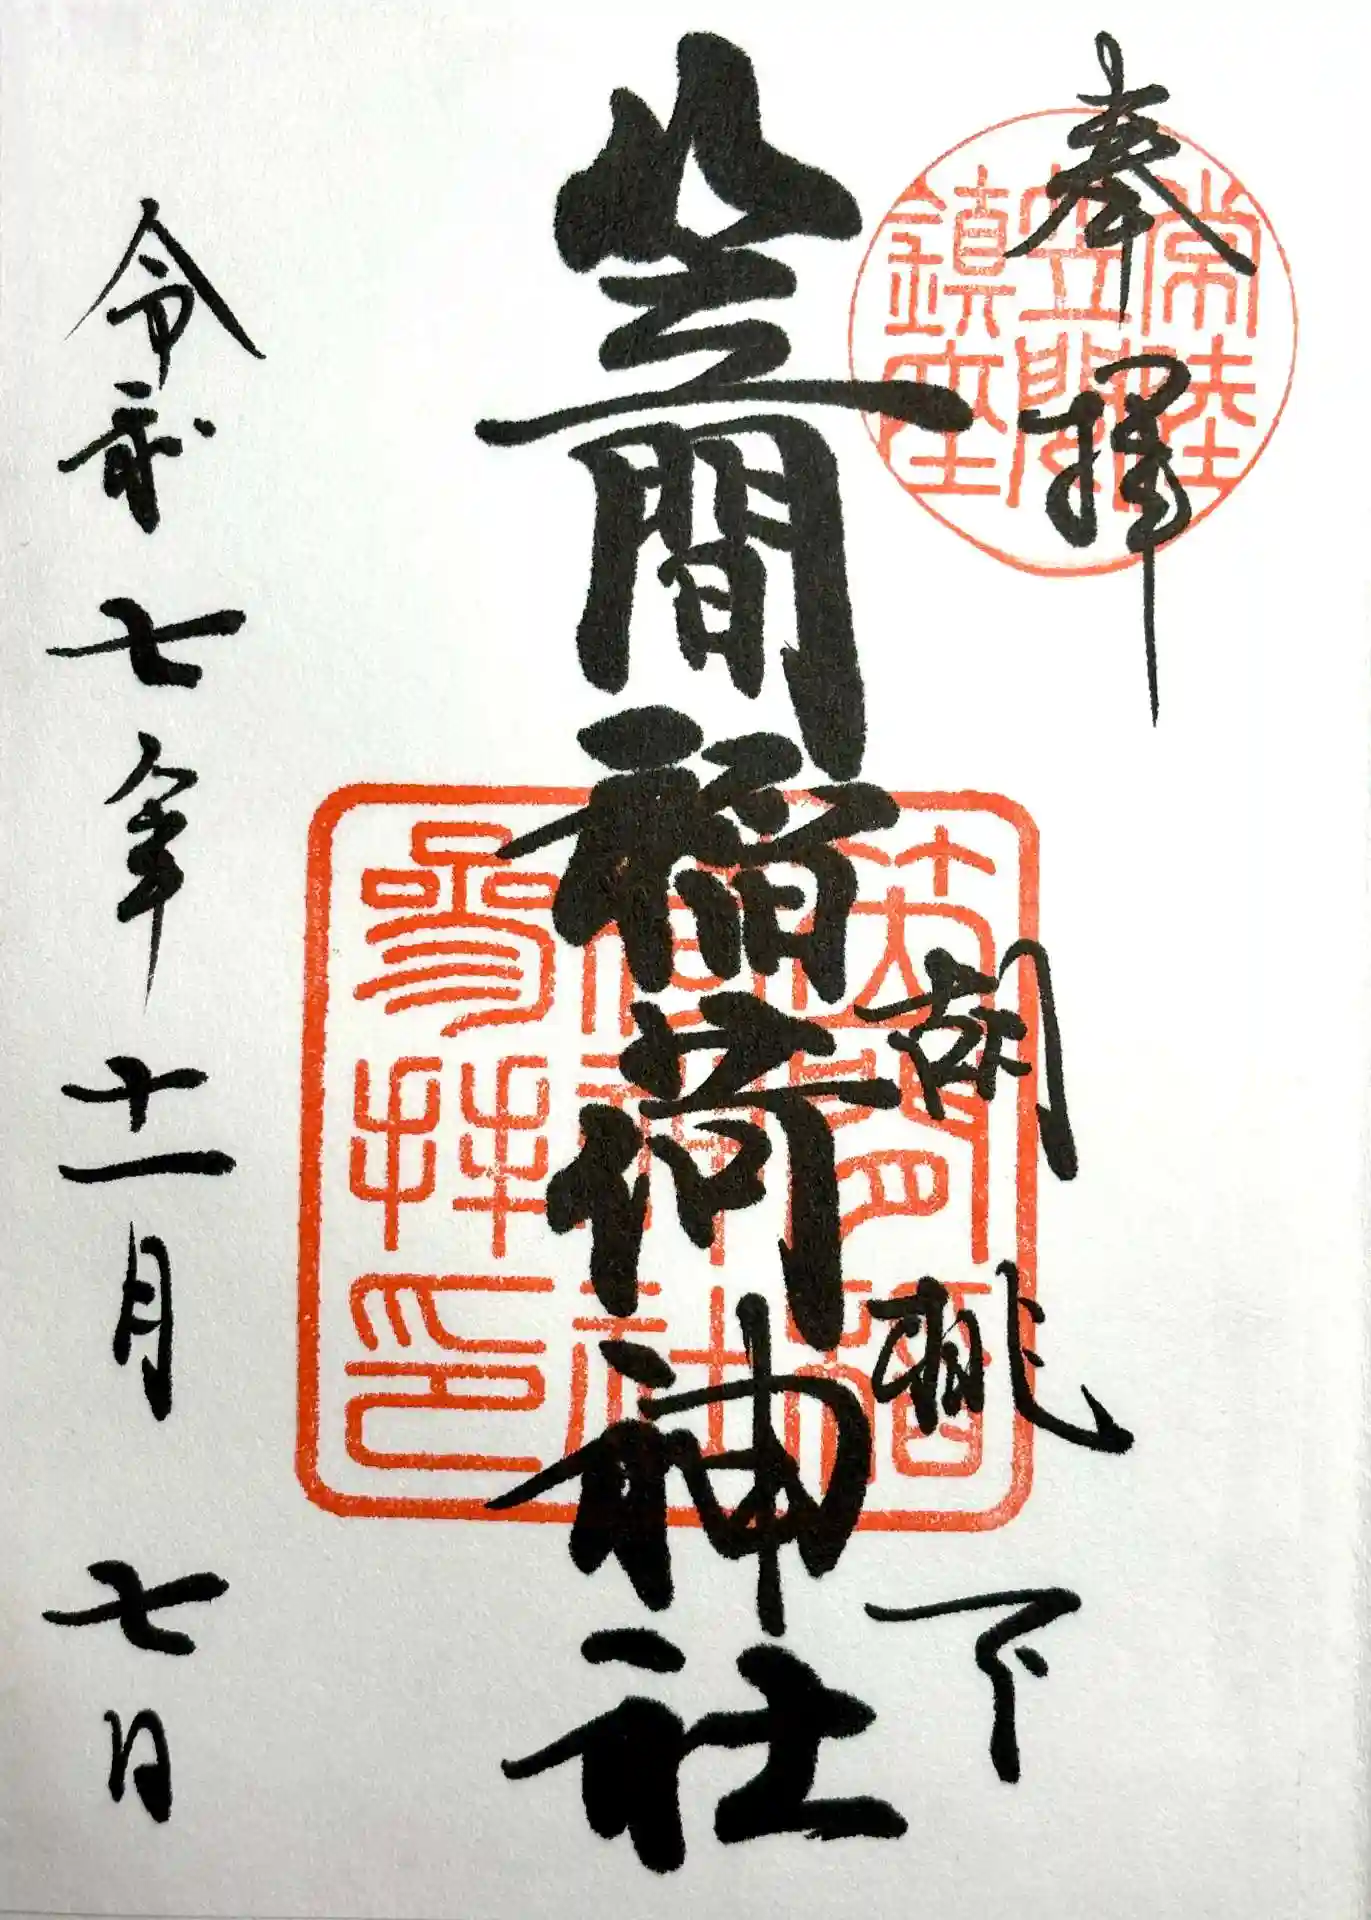 奉拝
常陸
笠間
鎮座
胡桃下
笠間稲荷神社
笠間稲
荷神社
参拝印
令和七年十一月七日